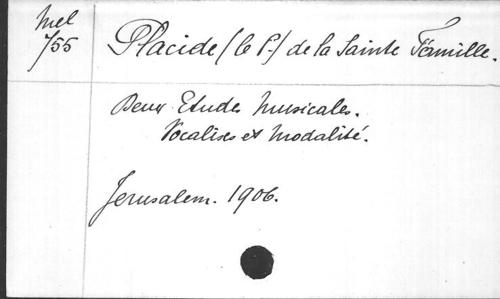 Mel
1/55
Placide (le P.) de la Sainte Famille.
Deux Etudes musicales.
Vocalises et modalité.
Jerusalem. 1906.